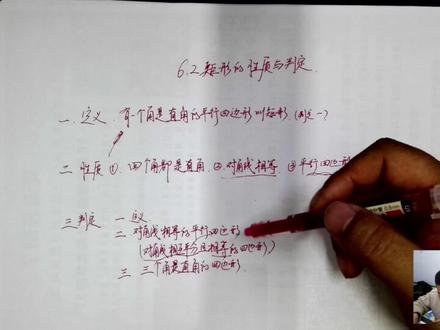 6.2 矩形的性质与判定.
一. 定义. 有一个角是直角的平行四边形叫矩形 (判定一)
二 性质 ①. 四个角都是直角. ②. 对角线相等. ③ 平行四边形
三 判定 一 定义
二 对角线相等的平行四边形
(对角线相互平分且相等的四边形)
三 三个角是直角的四边形.